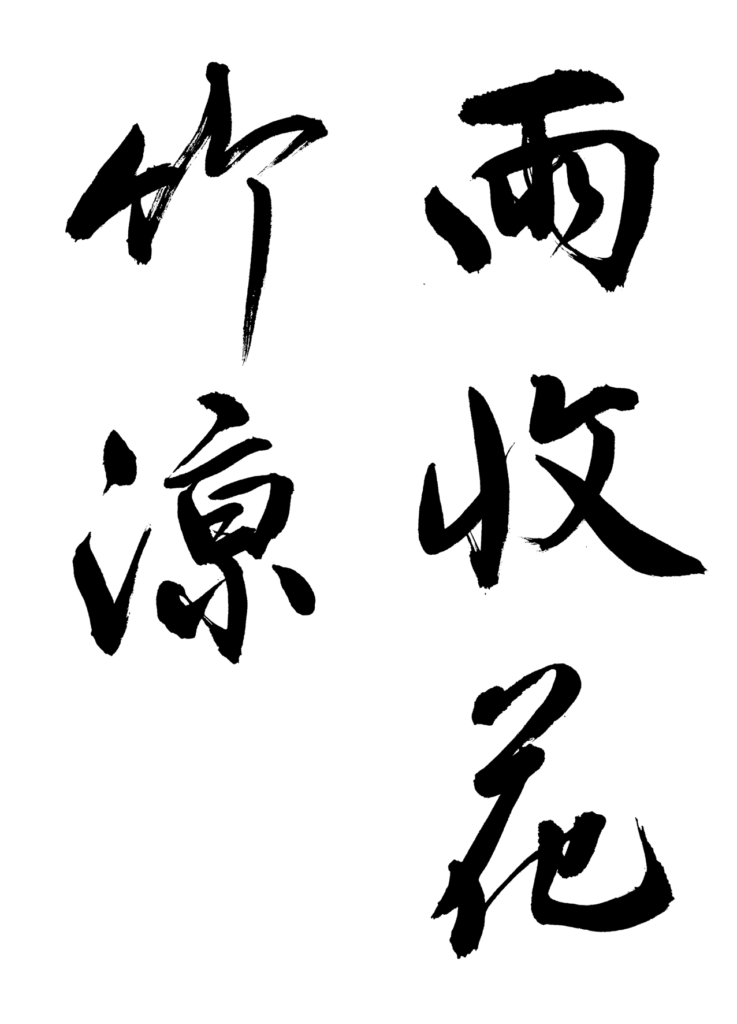 雨收花
竹凉